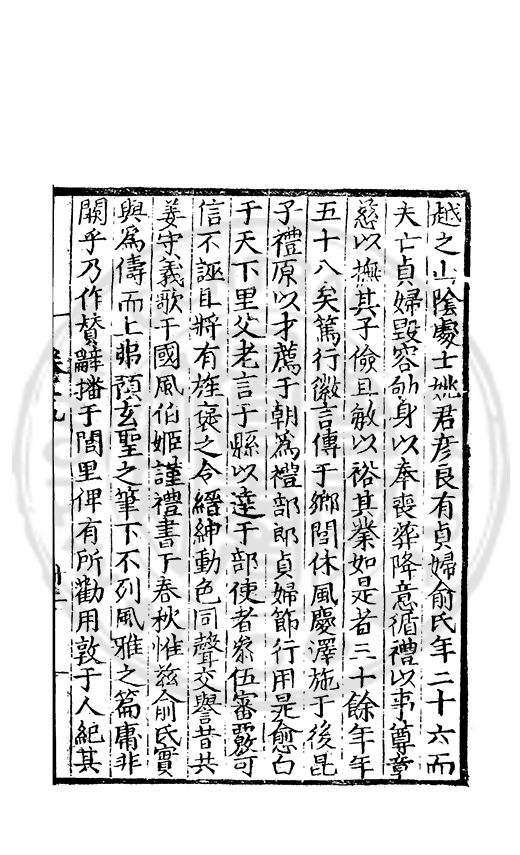 越之山陰處士姚君彥良有貞婦俞氏年二十六而
夫亡貞婦毀容劬身以奉喪葬降意循禮以事尊章
慈以撫其子儉且敏以裕其業如是者三十餘年年
五十八矣篤行徽言傳于鄉閭休風慶澤施于後昆
子禮原以才薦于朝為禮部郎貞婦節行用是愈白
于天下里父老言于縣以達于部使者叅伍審覈可
信不誣且將有旌襃之令縉紳動色同聲交譽昔共
姜守義歌于國風伯姬謹禮書于春秋惟茲俞氏實
與為儔而上弗預玄聖之筆下不列風雅之篇庸非
闕乎乃作賛辭播于閭里俾有所勸用敦于人紀其